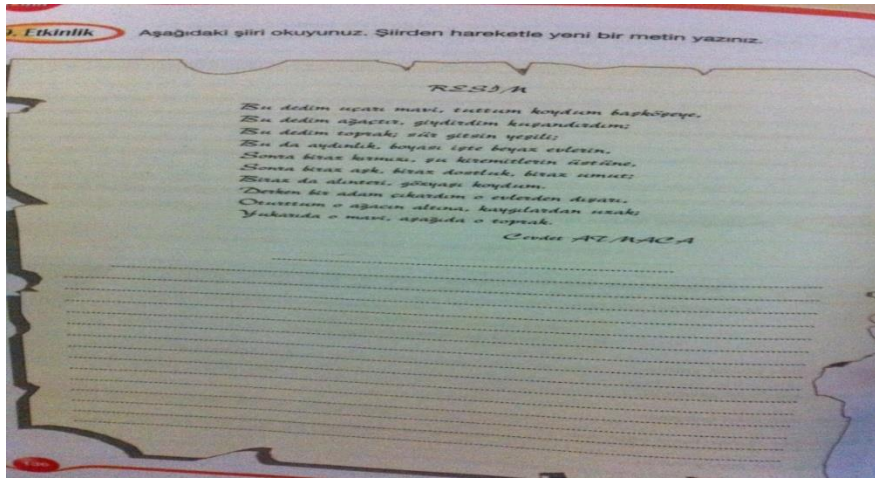 . Etkinlik
Aşağıdaki şiiri okuyunuz. Şiirden hareketle yeni bir metin yazınız.
RESİM
Bu dedim uçarı mavi, tuttum koydum başköşeye,
Bu dedim ağaçtır, giydirdim kuşandırdım;
Bu dedim toprak; sür gitsin yeşili;
Bu da aydınlık, boyası işte beyaz evlerin,
Sonra biraz kırmızı, şu kiremitlerin üstüne,
Sonra biraz aşk, biraz dostluk, biraz umut;
Biraz da alınteri, gözyaşı koydum.
Derken bir adam çıkardım o evlerden dışarı,
Oturttum o ağacın altına, kaygılardan uzak;
Yukarıda o mavi, aşağıda o toprak.
Cevdet ATMACA